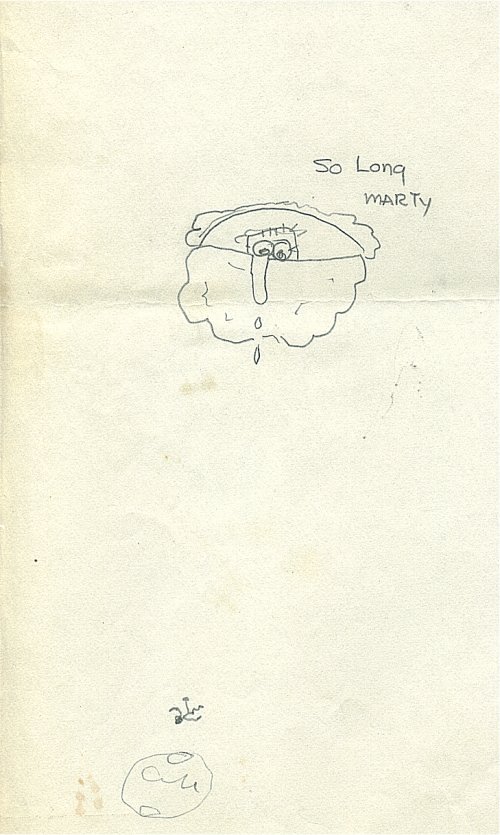 So Long
MARTY